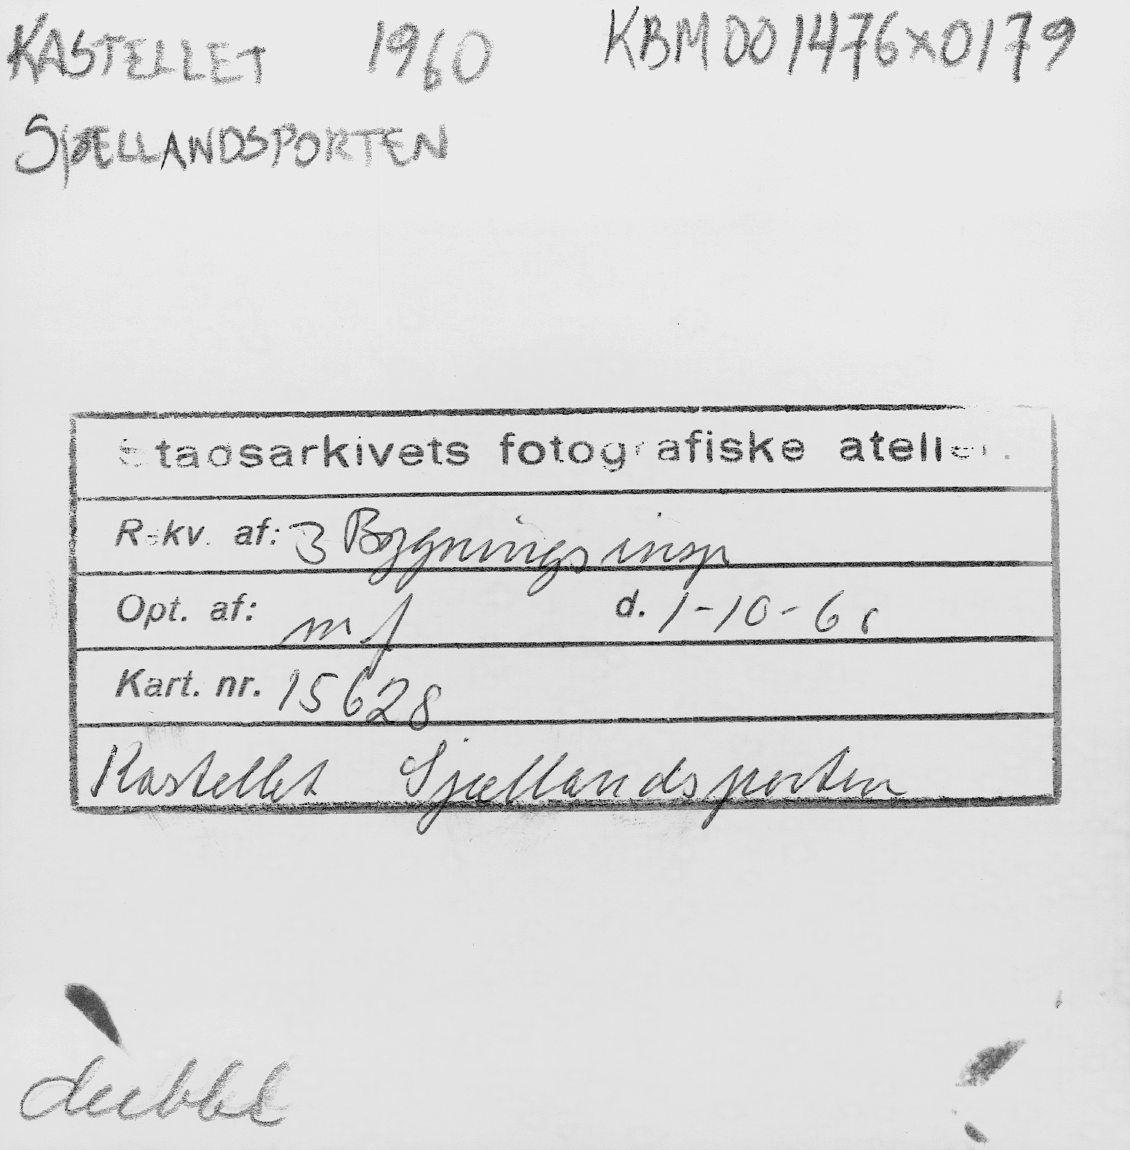 KASTELLET 1960 KBM001476x0179
SJÆLLANDSPORTEN
Stadsarkivets fotografiske atelier.
Rekv. af: 3 Bygningsinsp
Opt. af: m f d. 1-10-6
Kart. nr. 15628
Kastellet Sjællandsporten
dubbl